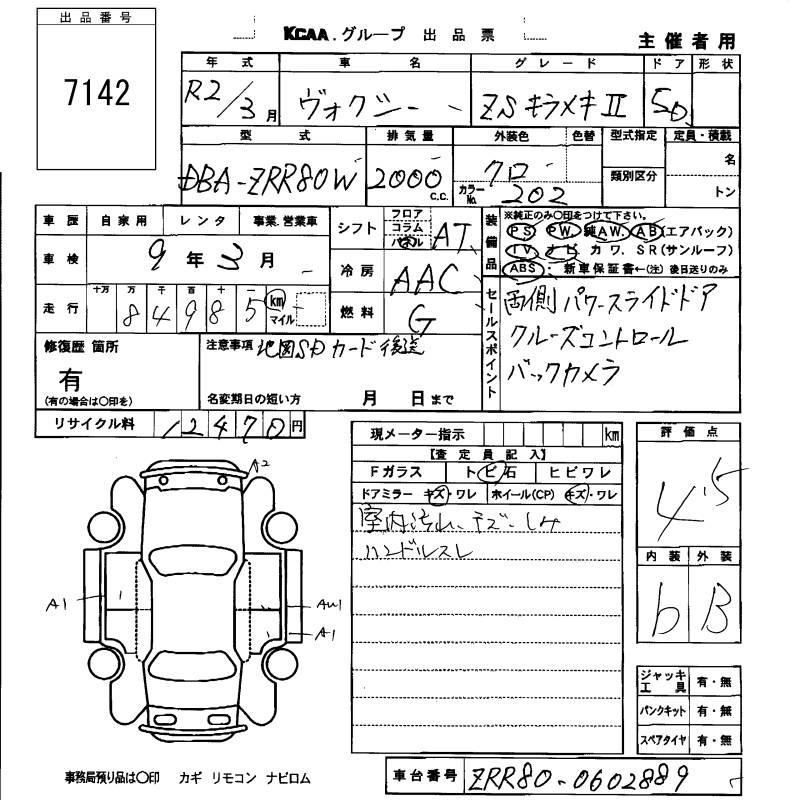 出品番号
7142
KCAA.グループ 出品票
主催者用
年式 車名 グレード ドア 形状
R2/3月 ヴォクシー ZSキラメキII 5D
型式 排気量 外装色 色替 型式指定 定員・積載
DBA-ZRR80W 2000 c.c. クロ 類別区分 名
カラーNo. 202 トン
車歴 自家用 レンタ 事業.営業車
車検 9年3月
走行 十万 万 千 百 十 一
84985 km マイル
シフト フロア コラム パネル AT
冷房 AAC
燃料 G
装備品 ※純正のみ○印をつけて下さい。
PS PW 純AW. AB(エアバック)
TV ナビ カワ. SR(サンルーフ)
ABS 新車保証書←(注)後日送りのみ
セールスポイント 両側パワースライドドア
クルーズコントロール
バックカメラ
修復歴 箇所
有
(有の場合は○印を)
注意事項 地図SDカード後送
名変期日の短い方 月 日まで
リサイクル料 12470円
現メーター指示 km
【査定員記入】
Fガラス トビ石 ヒビワレ
ドアミラー キズ・ワレ ホイール(CP) キズ・ワレ
室内汚れ、キズ、しみ
ハンドルスレ
評価点
4.5
内装 外装
b B
ジャッキ工具 有・無
パンクキット 有・無
スペアタイヤ 有・無
A2
A1
AW1
A1
事務局預り品は○印 カギ リモコン ナビロム
車台番号 ZRR80-0602889